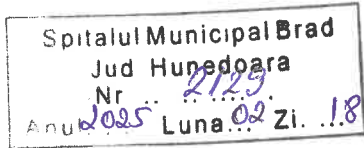 Spitalul Municipal Brad
Jud Hunedoara
Nr .. 2129
Anul 2025 Luna 02 Zi. .18